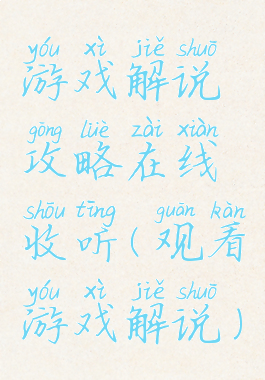 yóu xì jiě shuō
游戏解说
gōng lüè zài xiàn
攻略在线
shōu tīng guān kàn
收听(观看
yóu xì jiě shuō
游戏解说)